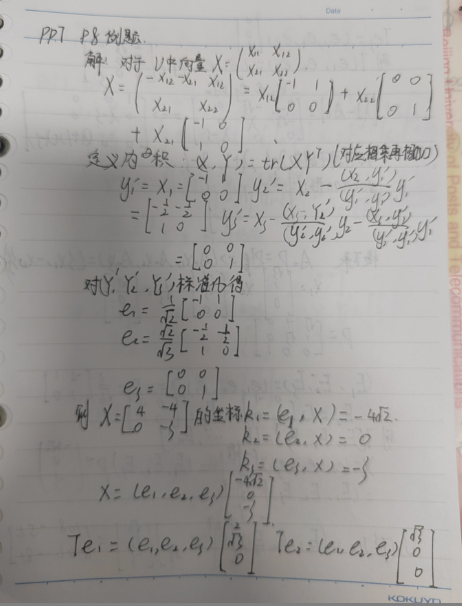 Date
PPT P8 例题
解: 对于U中向量 X = (x11 x12 x21 x22)
X = (-x12-x21 x12 x21 x22) = x12[-1 1 0 0] + x22[0 0 0 1]
+ x21[-1 0 1 0]
定义内积 (X, Y) = tr(XY^T) (对应相乘再相加)
y1' = X1 = [-1 1 0 0] y2' = X2 - (X2, y1')/(y1', y1') y1'
= [-1/2 -1/2 1 0] y3' = X3 - (X3, y2')/(y2', y2') y2' - (X3, y1')/(y1', y1') y1'
= [0 0 0 1]
对y1', y2', y3'标准化得
e1 = 1/√2 [-1 1 0 0]
e2 = √2/√3 [-1/2 -1/2 1 0]
e3 = [0 0 0 1]
则 X = [4 -4 0 -3] 的坐标 k1 = (e1, X) = -4√2.
k2 = (e2, X) = 0
k3 = (e3, X) = -3
X = (e1, e2, e3) [-4√2 0 -3]
Te1 = (e1, e2, e3) [2 √3 0] Te2 = (e1, e2, e3) [√3 0 0]
KOKUYO